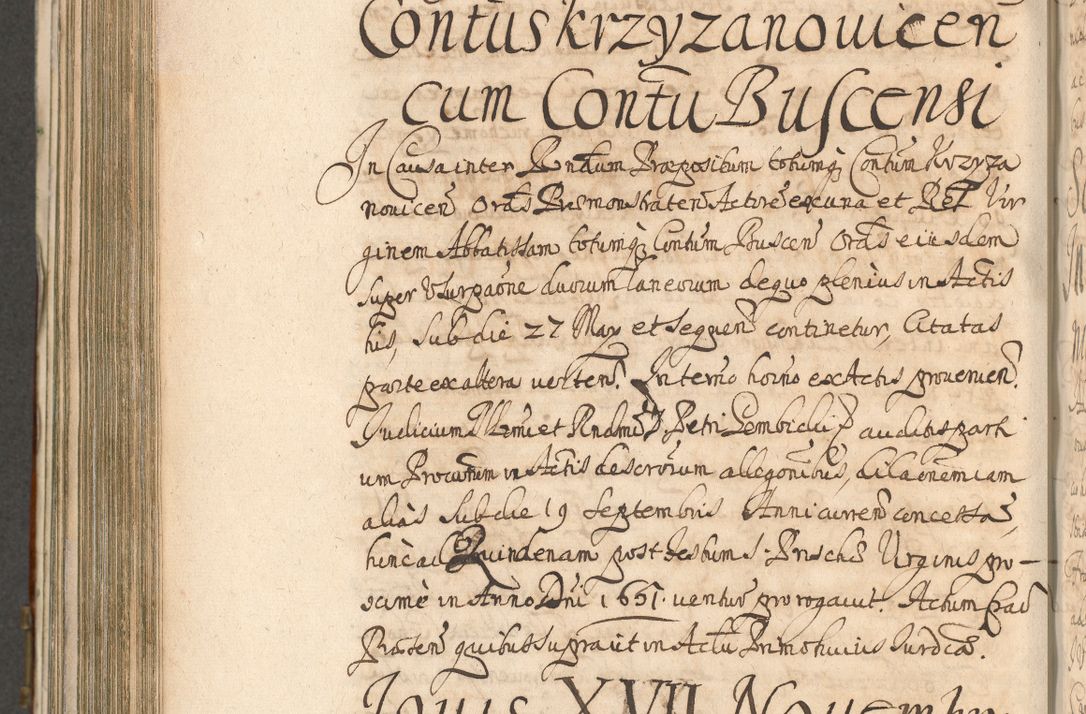 Contus Krzyzanouicen̄
cum Contū Buscensi
In Causa inter R̄ndum Præpositum totumq Contum Krzyza
nouicen̄ Ordīs Præmonstraten̄ Actore ex una et Rel Vir
ginem Abbatissam totumq Contum Buscen̄ Ordīs eiusdem
super Vsurpaōne duorum Laneorum de quo plenius in Actis
his, sub die 27 Maÿ et sequen̄ continetur, Citatas
parte ex altera verten̄. In termo horno ex Actis prouenien̄.
Judicium Illmi et Rndmi D. Petri Gembicki P auditis parti
um Procurum in Actis descrorum allegonibus, dilaōnem iam
alias sub die 19 Septembris Anni curren̄ concessā,
hinc ad Quindenam post festum S. Priscæ Virginis pro-
xime in Anno Dni 1651. venturo prorogauit. Actum Crac
Pnten̄ quibus supra ut in Actu Primo huius Iurdicæ.
Iouis XVII Nouembr